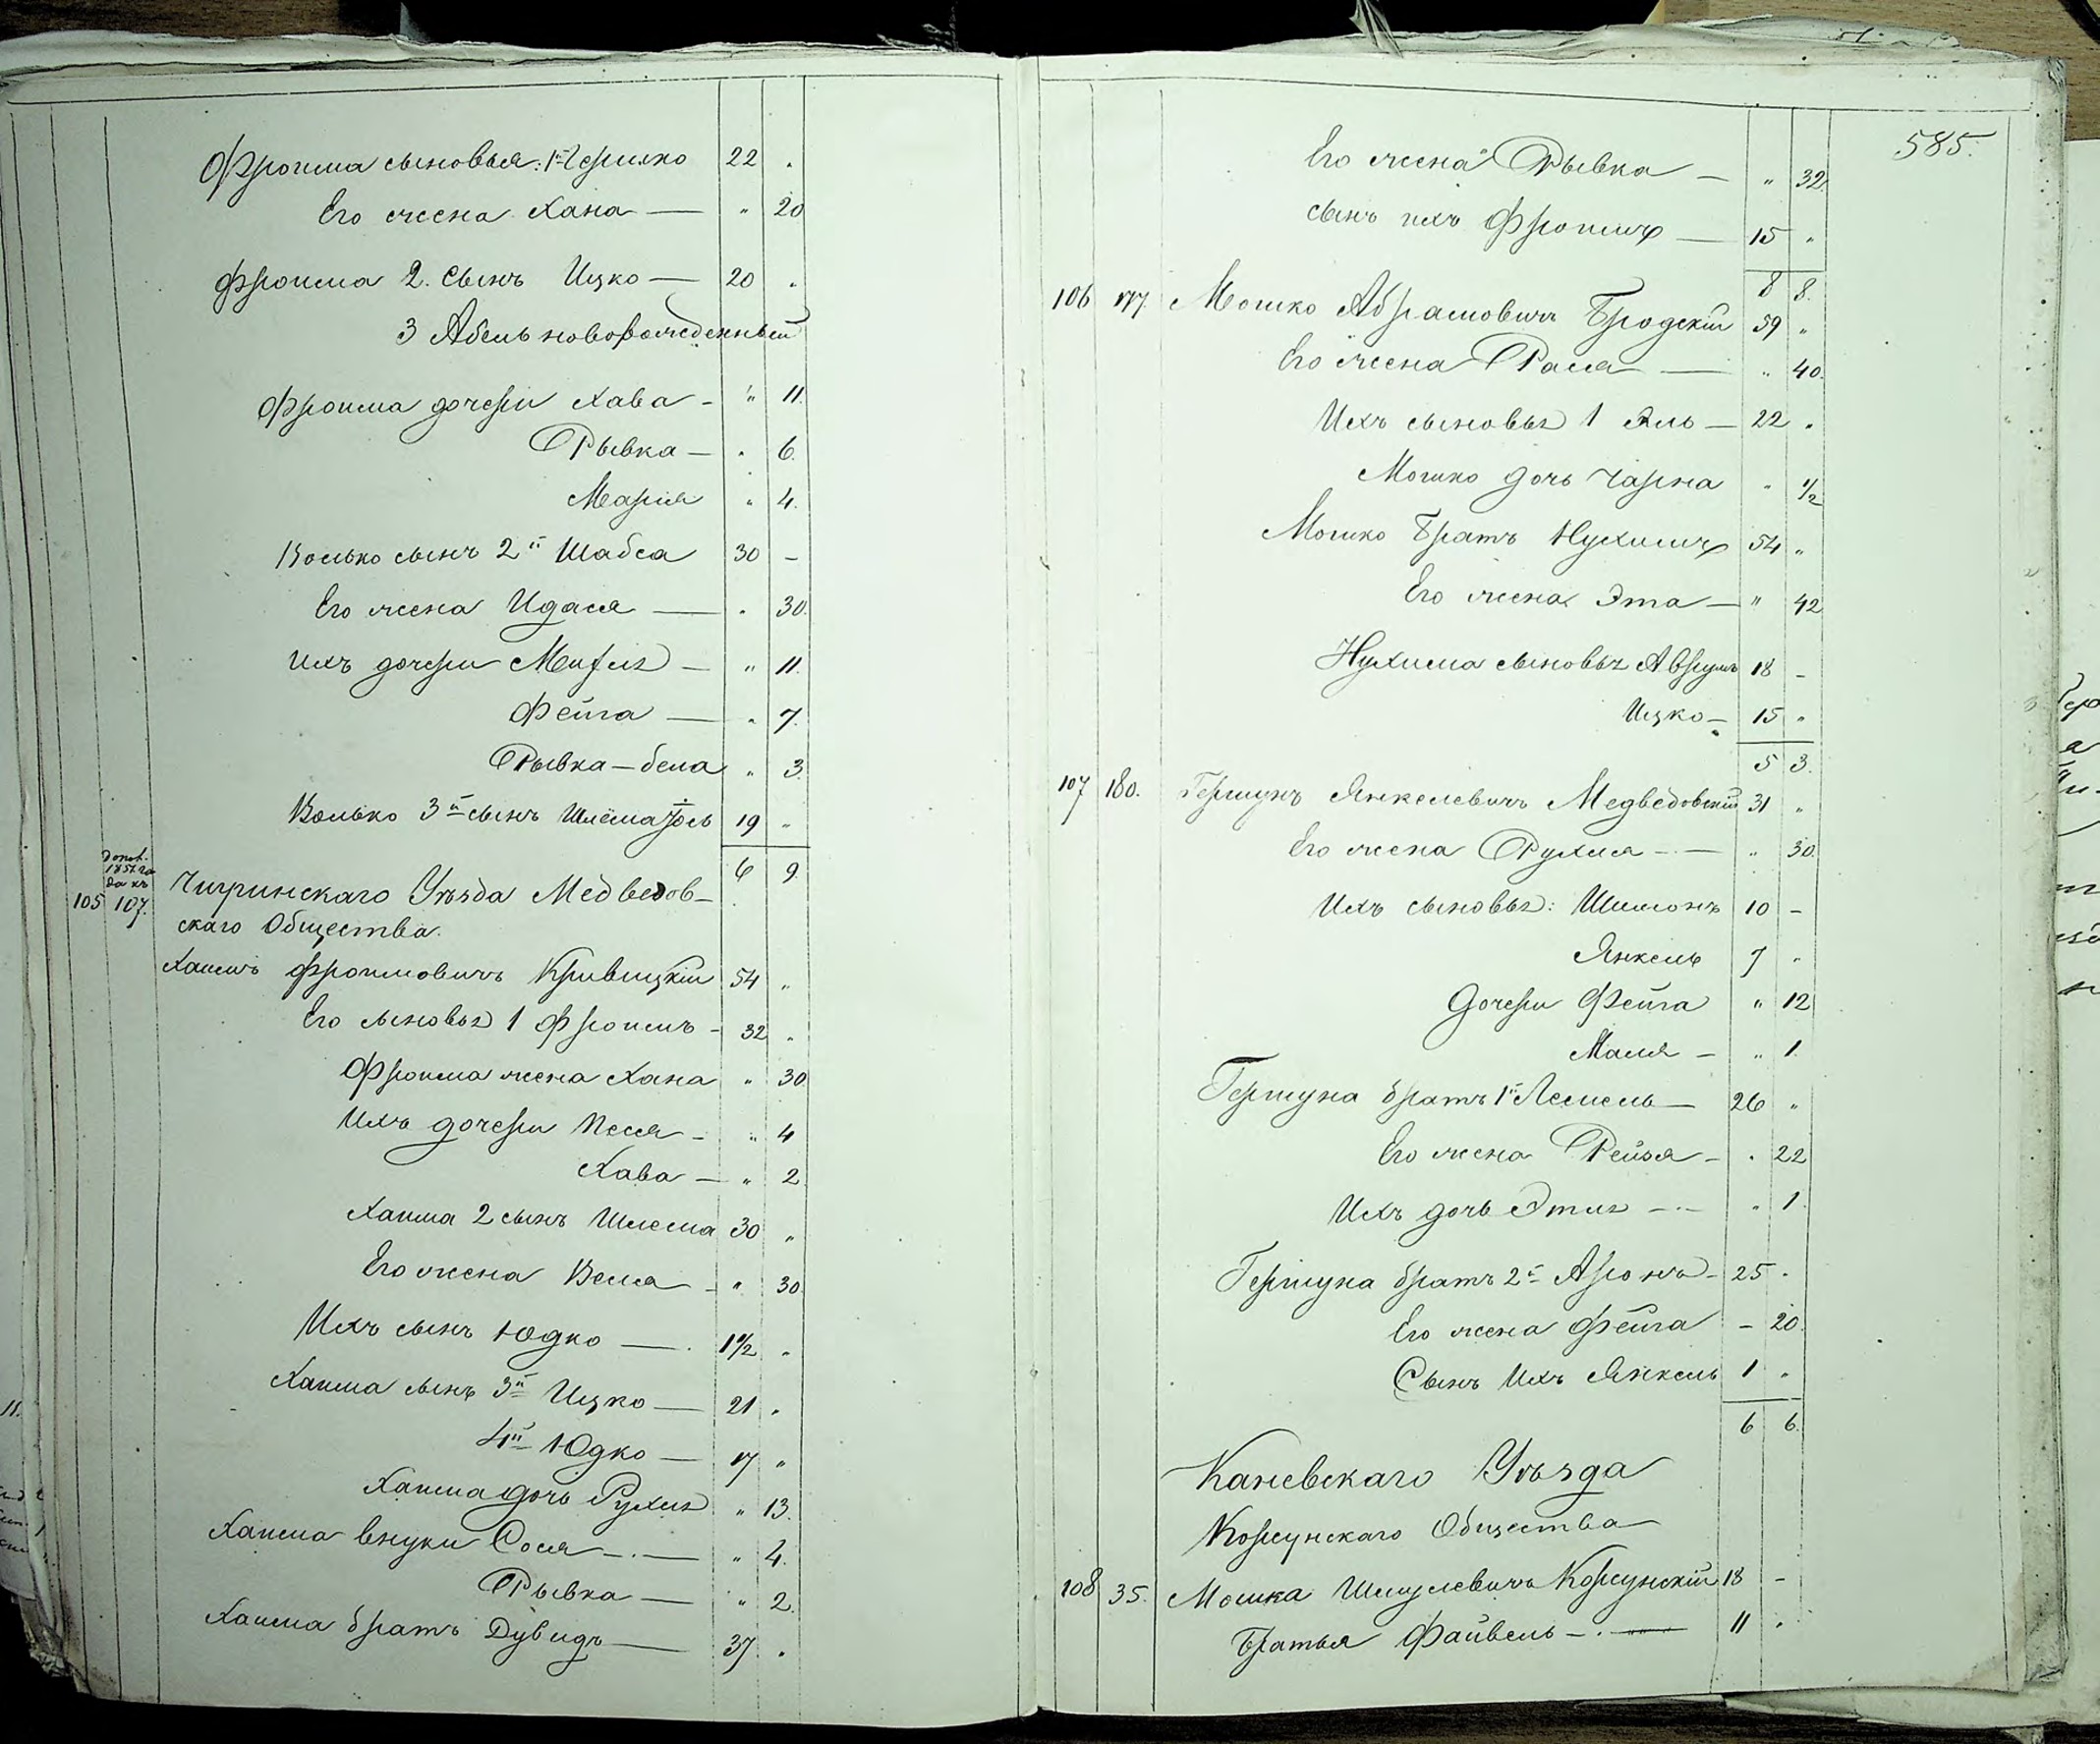 Фроима сыновья: 1й Гершко 22 „
Его жена Хана — „ 20
Фроима 2. Сынъ Ицко — 20 „
3 Абель новорожденный
Фроима дочери Хава - „ 11.
Рывка — „ 6.
Марья „ 4.
Волько сынъ 2й Шабса 30 —
Его жена Идася — „ 30.
Ихъ дочери — „ 11.
Фейга — „ 7.
Рывка — бела „ 3.
Волько 3й сынъ Шлёма 19 „
6 9.
1857 го
105 107. Чигринскаго Уѣзда Медведов-
скаго Общества.
Хаимъ Фроимовичъ Кривицкій 54 „
Его сыновья 1 Фроимъ - 32 „
Фроима жена Хана „ 30
Ихъ дочери Песся - „ 4
Хава — „ 2
Хаима 2 сынъ Шлема 30 „
Его жена Вема - „ 30
Ихъ сынъ Юдко — 1 1/2 „
Хаима сынъ 3й Ицко — 21 „
4й Юдко — 17 „
Хаима дочь Рухля „ 13.
Хаима внуки Сося — „ 4.
Рывка — „ 2.
Хаима братъ Дувидъ — 37. „
585.
Его жена Рывка — „ 32
сынъ ихъ Фроимъ — 15 „
8 8.
106 177. Мошко Абрамовичъ Бродскій 59 „
Его жена Рася — „ 40.
Ихъ сыновья 1 Эль — 22 „
Мошко дочь Чарна „ 1/2
Мошко братъ Нухимъ 54 „
Его жена Эта — „ 42
Нухима сыновья Аврумъ 18 —
Ицко — 15 „
5 3.
107 180. Гершунъ Янкелевичъ Медведовскій 31 „
Его жена Рухля — „ 30.
Ихъ сыновья: Шимонъ 10 —
Янкель 7 „
Дочери Фейга „ 12
Маля — „ 1.
Гершуна братъ 1й Лемель — 26 „
Его жена Рейзя — „ 22
Ихъ дочь Этля — „ 1.
Гершуна братъ 2й Аронъ - 25 „
Его жена Фейга — 20.
Сынъ Ихъ Янкель 1 „
6 6.
Каневскаго Уѣзда
Корсунскаго Общества
108 35. Мошка Шмулевичъ Корсунскій 18 —
Братья Файвель — 11 „